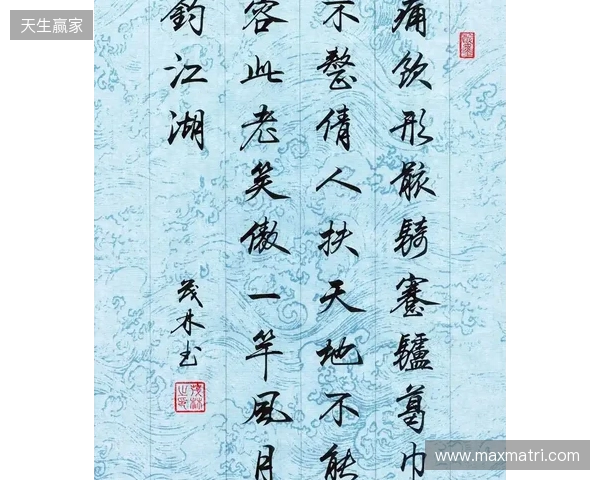 天生赢家
痛饮形骸騎蹇驢葛巾
不整倩人扶天地不能
容此老笑傲一竿風月
釣江湖
茂林书
www.maxmatri.com